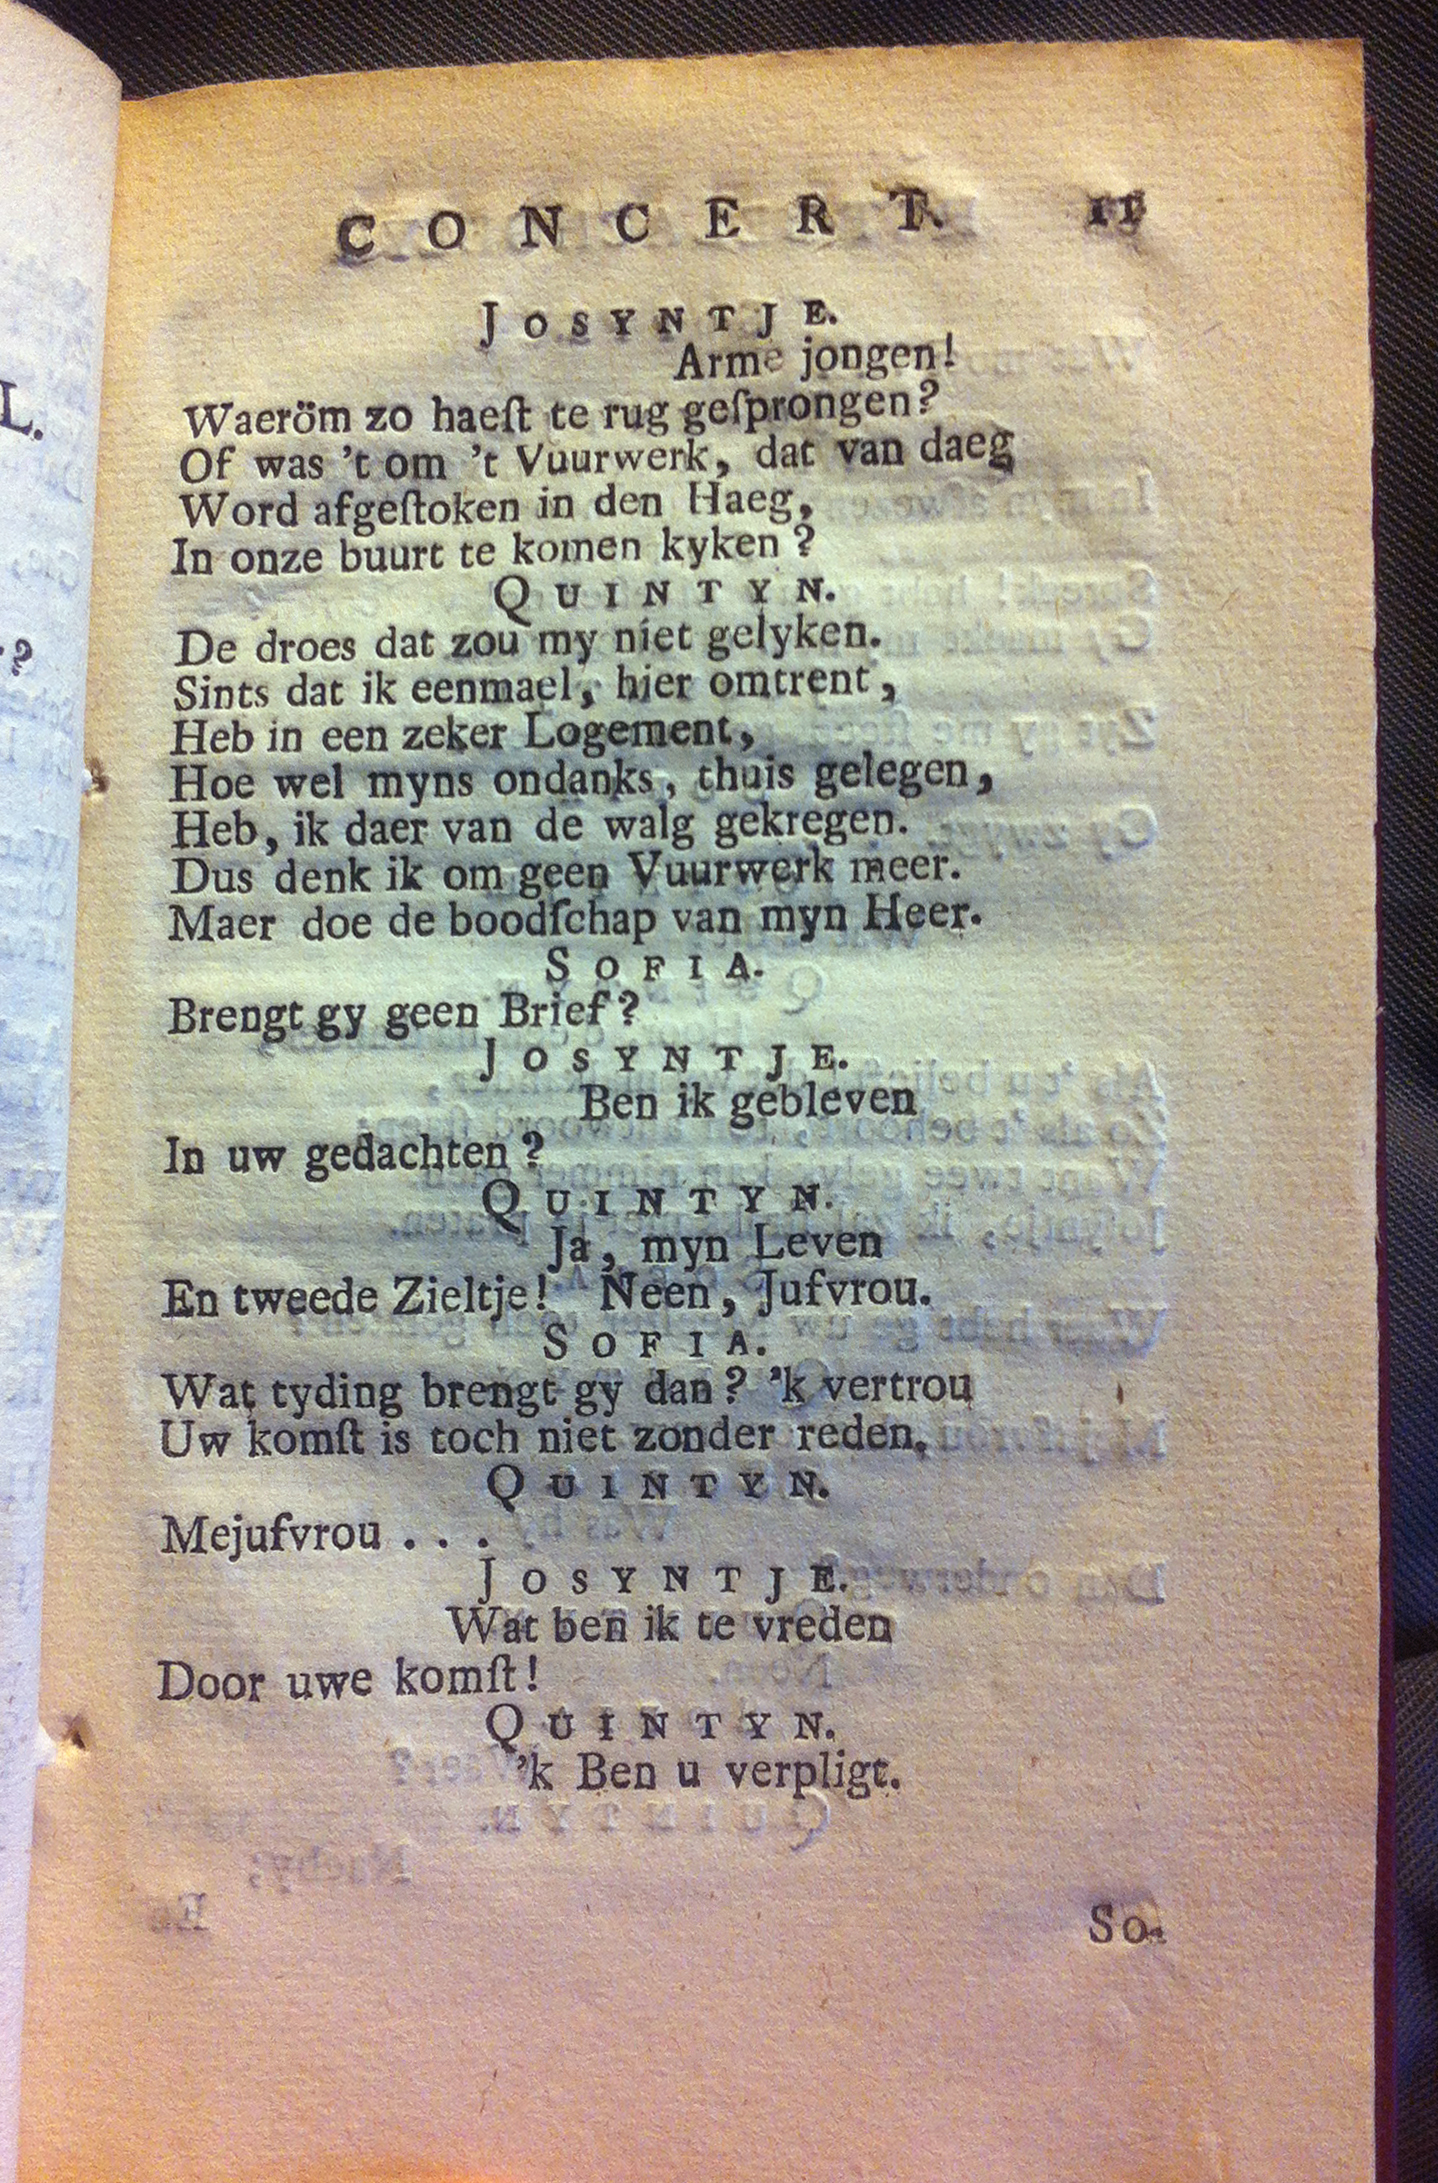 CONCERT. 11
JOSYNTJE.
Arme jongen!
Waeröm zo haeſt te rug geſprongen?
Of was 't om 't Vuurwerk, dat van daeg
Word afgeſtoken in den Haeg,
In onze buurt te komen kyken?
QUINTYN.
De droes dat zou my niet gelyken.
Sints dat ik eenmael, hier omtrent,
Heb in een zeker Logement,
Hoe wel myns ondanks, thuis gelegen,
Heb, ik daer van de walg gekregen.
Dus denk ik om geen Vuurwerk meer.
Maer doe de boodſchap van myn Heer.
SOFIA.
Brengt gy geen Brief?
JOSYNTJE.
Ben ik gebleven
In uw gedachten?
QUINTYN.
Ja, myn Leven
En tweede Zieltje! Neen, Jufvrou.
SOFIA.
Wat tyding brengt gy dan? 'k vertrou
Uw komſt is toch niet zonder reden.
QUINTYN.
Mejufvrou . . .
JOSYNTJE.
Wat ben ik te vreden
Door uwe komſt!
QUINTYN.
'k Ben u verpligt.
So-
L.
?